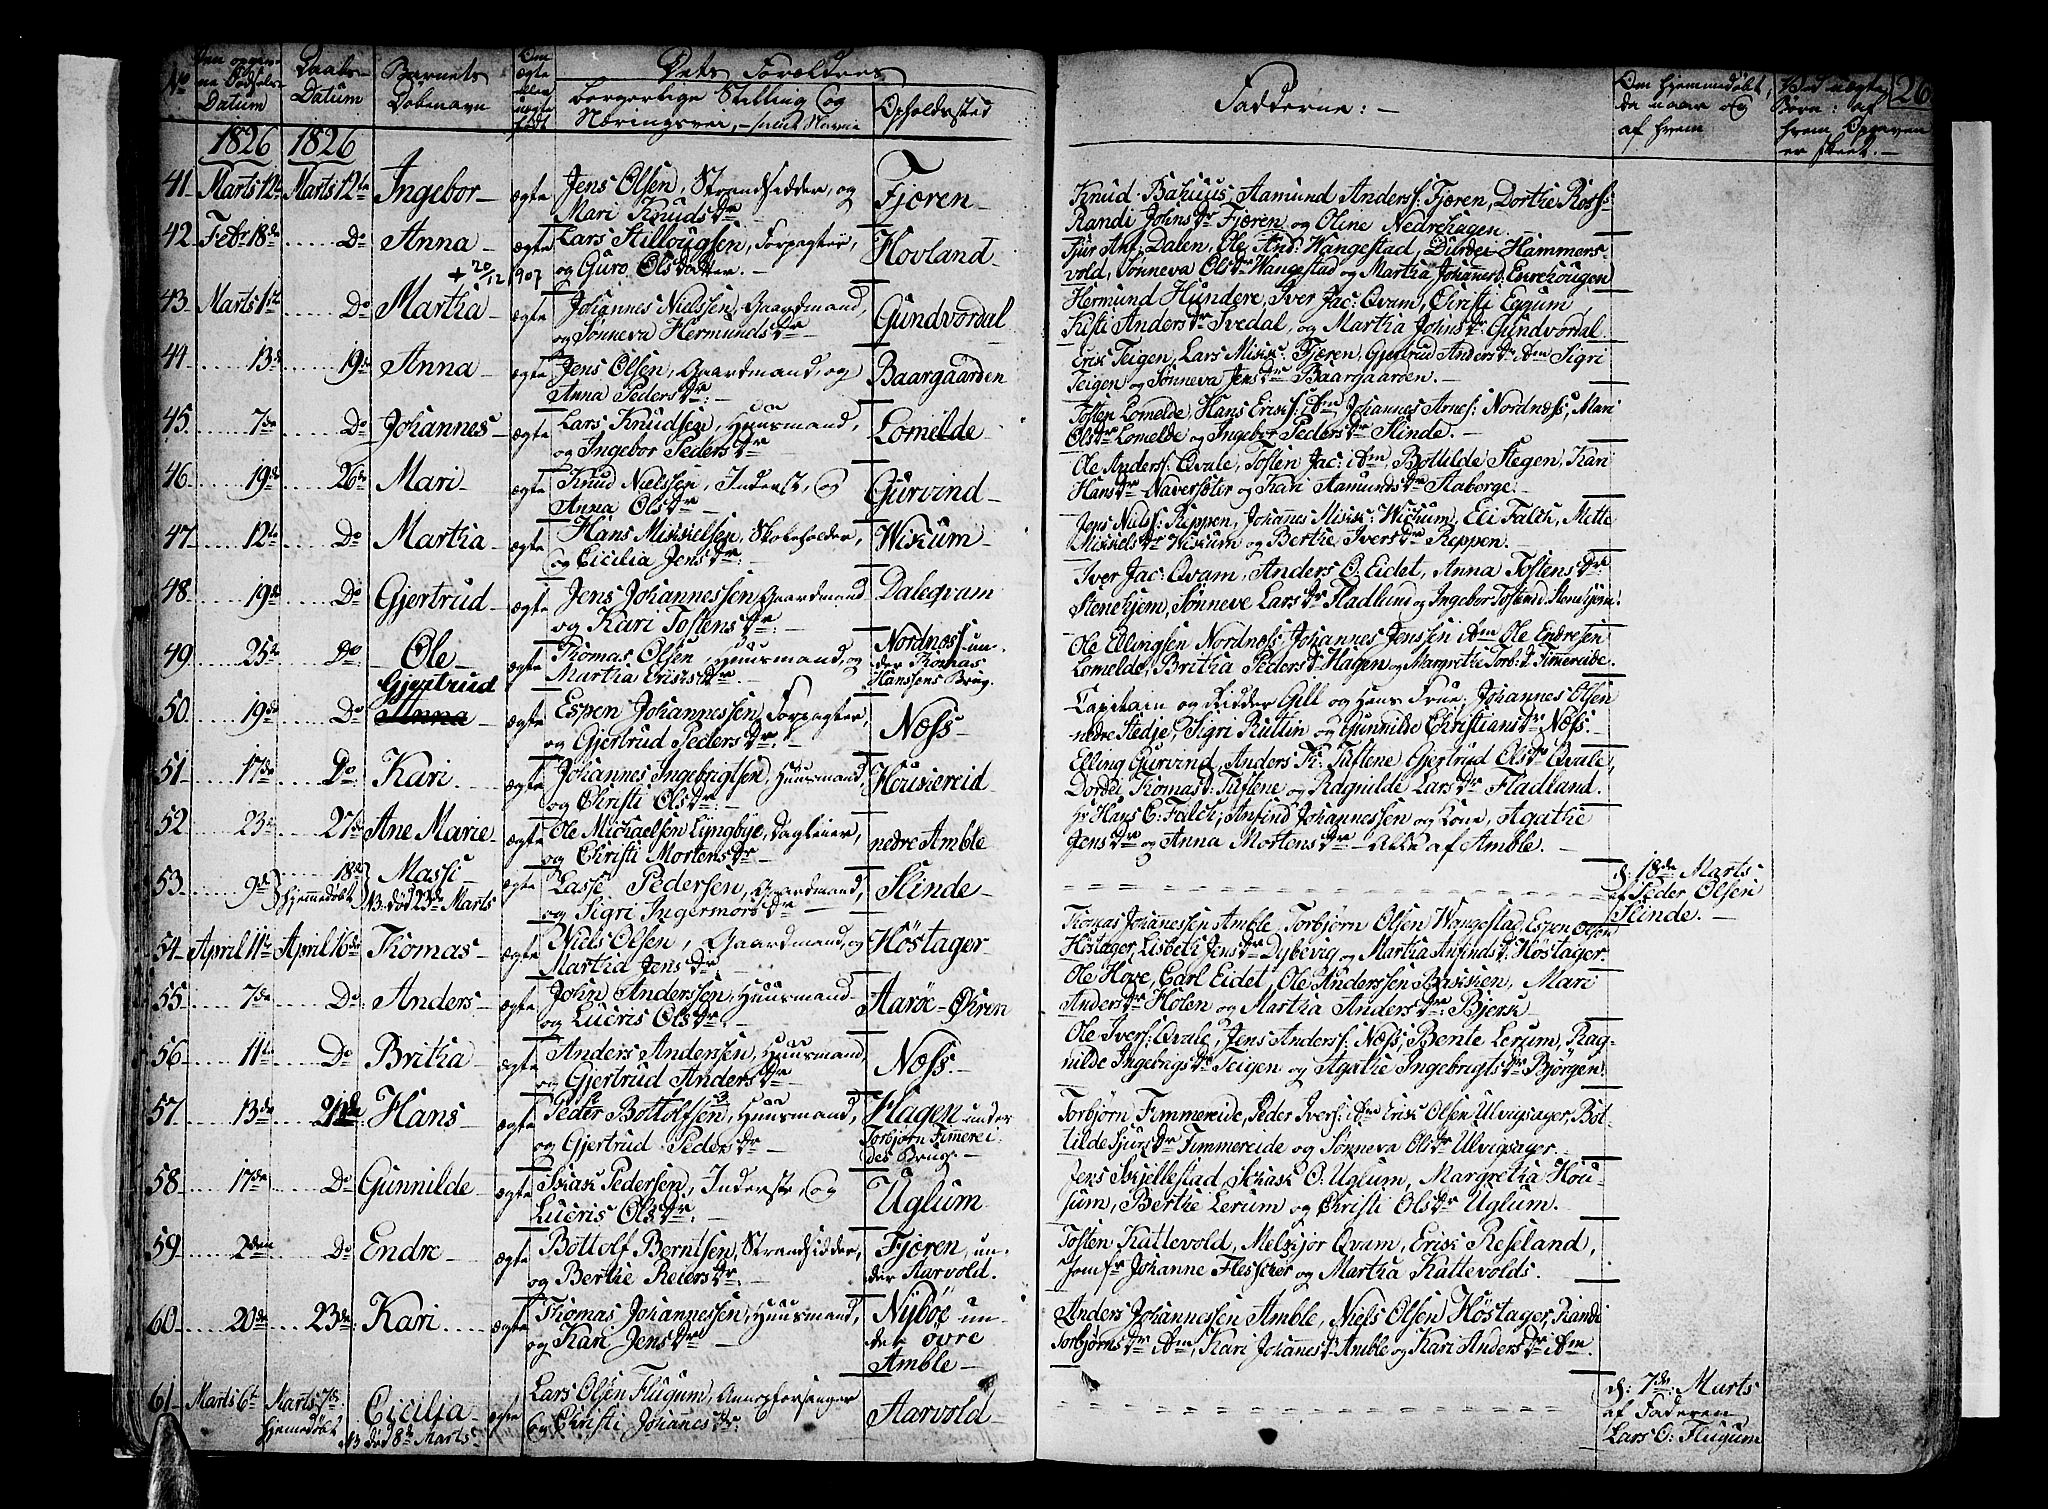 No
Datum
Daabs-
Datum
Barnets
Døbenavn
Om
ægte
eller
uægte
født
Dets Forældres
borgerlige Stilling og
Næringsvei, samt Navne
Opholdssted
Fadderne:
Om hjemmedøbt,
da naar og
af hvem
Ved uægte
Børn: af
hvem Opgaven
er skeet.
26
1826 1826
41 Marts 12te Marts 12te Ingebor ægte Jens Olsen, Strandsidder, og
Mari Knudsdr
Fjæren
Knud Bakius, Aamund Anderss: Fjæren, Dorthe Ross:
Randi Johnsdr Fjæren og Oline Nedrehagen.
42 Febr 18de Do Anna ægte Lars Stillougsen, Forpagter,
og Guro Olsdatter.
Hovland
Sjur Ant: Dalen, Ole And: Wangestad, Durdei Hammers-
vold, Sønneva Olsdr Wangestad og Martha Johannesd: Enrehougen
+ 20/12 1907
43 Marts 1ste Do Martha ægte Johannes Nielssen, Gaardmand,
og Sønneva Hermundsdr
Gundvordal
Hermund Hundere, Iver Jac: Qvam, Christi Eggum
Kisti Andersdr Svedal, og Martha Johnsdr Gundvordal
44 13de 19de Anna ægte Jens Olsen, Gaardmand, og
Anna Pedersdr
Baargaarden
Erik Teigen, Lars Mikk: Fjæren, Gjertrud Andersdr ibm Sigri
Teigen og Sønneva Jensdr Baargaarden.
45 7de Do Johannes ægte Lars Knudsen, Huusmand,
og Ingebor Pedersdr
Lomelde
Tosten Lomelde, Hans Eriks: ibm, Johannes Arnes: Nordnæss, Mari
Olsdr Lomelde og Ingebor Pedersdr Slinde.
46 19de 26de Mari ægte Knud Nielssen, Inderst, og
Anna Olsdr
Gurvind
Ole Anderss: Qvale, Tosten Jac: ibm, Botilde Stegen, Kari
Hansdr Naversæter og Kari Aamundsdr Aaberge.
47 12te Do Martha ægte Hans Mikkelsen, Skoleholder,
og Cicilia Jensdr
Wikum
Jens Nielss: Reppen, Johannes Mikk: Wikum, Eli Falch, Mette
Mikkelsdr Wikum og Berthe Iversdr Reppen.
48 19de Do Gjertrud ægte Jens Johannessen, Gaardmand
og Kari Tostensdr
Daleqvam
Iver Jac: Qvam, Anders O. Eidet, Anna Tostensdr
Stenehjem, Sønneve Larsdr Fladlund og Ingebor Tostensd. Stenehjem.
49 25de Do Ole ægte Thomas Olsen, Huusmand, og
Martha Eriksdr
Nordnæss un-
der Thomas
Hanssens Brug.
Ole Ellingsen Nordnæss, Johannes Jenssen ibm Ole Endresen
Lomelde, Britha Pedersd: Hagen og Margrethe Torb:d. Timmereide.
50 19de Do Gjertrud
Anna
ægte Espen Johannessen, Forpagter,
og Gjertrud Pedersdr
Næss
Capitain og Ridder Gill og hans Frue, Johannes Olsen
nedre Stedje, Sigri Ruttin og Gunnilde Christiansdr Næss.
51 17de Do Kari ægte Johannes Ingebrigtsen, Huusmand
og Christi Olsdr
Houkereid
Elling Gurvind, Anders Th: Tuftene Gjertrud Olsdr Qvale,
Dordei Thomasd: Tuftene og Ragnilde Larsdr Fladland.
52 23de 27de Ane Marie ægte Ole Michaelsen Lyngbye, Dagleier,
og Christi Mortensdr
nedre Amble
Hr Hans C: Falch, Anfind Johannessen og Kone, Agathe
Jensdr og Anna Mortensdr alle af Amble.
53 9de 18de
hjemmedøbt
Massi
NB. død 23de Marts
ægte Lasse Pedersen, Gaardmand,
og Sigri Ingermorsdr
Slinde
d: 18de Marts
af Peder Olsen
Slinde.
54 April 11te April 16de Thomas ægte Niels Olsen, Gaardmand, og
Martha Jensdr
Høstager
Thomas Johanessen Amble, Torbjørn Olsen Wangestad, Espen Olsen
Høstager, Lisbeth Jensdr Dybevig og Martha Anfindsd: Høstager.
55 7de Do Anders ægte John Anderssen, Huusmand
og Lucris Olsdr
Aarøe-Øiren
Ole Hove, Carl Eidet, Ole Anderssen Bakken, Mari
Andersdr Holen og Martha Andersdr Bjerk
56 11te Do Britha ægte Anders Andersen, Huusmand,
og Gjertrud Andersdr
Næss
Ole Ivers: Qvale, Jens Anderss: Næss, Bente Lerum, Rag-
nilde Ingebrigsdr Teigen og Agathe Ingebrigtsdr Bjørgen
57 13de 21de Hans ægte Peder Bottolfsen, Huusmand,
og Gjertrud Pedersdr
Hagen under
Torbjørn Timerei-
des Brug.
Torbjørn Timmereide, Peder Ivers: ibm Erik Olsen Ulvigsager, Bot-
tilde Sjursdr Timmereide og Sønneva Olsdr Ulvigsager.
58 17de Do Gunnilde ægte Isak Pedersen, Inderste, og
Lucris Olsdr
Uglum
Jens Skjellestad, Isak O: Uglum, Margretha Hou-
sum, Berthe Lerum og Christi Olsdr Uglum.
59 2den Do Endre ægte Bottolf Berntsen, Strandsidder,
og Berthe Reiersdr
Fjæren, un-
der Aarvold.
Tosten Kattevold, Melkjør Qvam, Erik Reseland,
Jomfr Johanne Flescher og Martha Kattevolds.
60 20de 23de Kari ægte Thomas Johannessen, Huusmand,
og Kari Jensdr
Nybøe un-
der øvre
Amble
Anders Johannessen Amble, Niels Olsen Høstager, Randi
Torbjørnsdr ibm, Kari Johannesd: Amble og Kari Andersdr ibm.
61 Marts 6te Marts 7de
hjemmedøbt
Cicilia
NB død 8de Marts
ægte Lars Olsen Flugum,
og Christi Johanesdr
Aarvold
d: 7de Marts
af Faderen
Lars O: Flugum